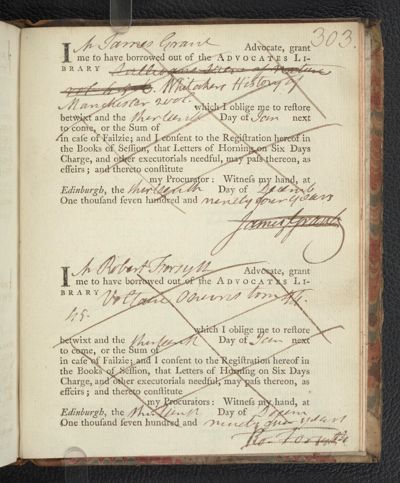 303.
I Mr James Grant Advocate, grant
me to have borrowed out of the ADVOCATES LI-
BRARY
Whitakers History of
Manchester 2 vol. which I oblige me to restore
betwixt and the thirteenth Day of Jan next
to come, or the Sum of
in case of Failzie; and I consent to the Registration hereof in
the Books of Session, that Letters of Horning on Six Days
Charge, and other executorials needful, may pass thereon, as
effeirs; and thereto constitute
my Procurator: Witness my hand, at
Edinburgh, the thirteenth Day of Decemb
One thousand seven hundred and ninety four years
James Grant
I Mr Robert Forsyth Advocate, grant
me to have borrowed out of the ADVOCATES LI-
BRARY Voltaire Oeuvres tom 44.
45.
which I oblige me to restore
betwixt and the thirteenth Day of Jan next
to come, or the Sum of
in case of Failzie; and I consent to the Registration hereof in
the Books of Session, that Letters of Horning on Six Days
Charge, and other executorials needful, may pass thereon, as
effeirs; and thereto constitute
my Procurator: Witness my hand, at
Edinburgh, the thirteenth Day of Decem
One thousand seven hundred and ninety four years
Ro. Forsyth